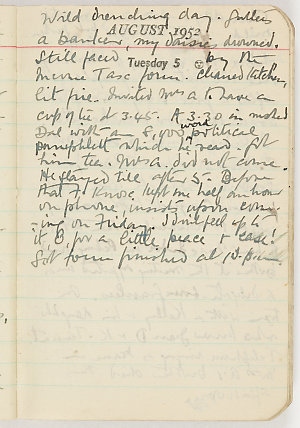 Wild drenching day. Gutters
AUGUST 1952
a banker, my daisies drowned.
Tuesday 5
Still faced by the
Income Tax form. Cleaned kitchen,
lit fire. Invited Mrs A to have a
cup of tea at 3.45. A 3.30 in walked
Dal with an 8,000 word political
pamphlett which he read. Got
him tea. Mrs A. did not come.
He stayed till after 5. Before
that F. Knox kept me half an hour
on phone, insists upon com-
-ing on Friday, I don't feel up to
it. O, for a little peace & ease!
Got form finished at 10. p.m.